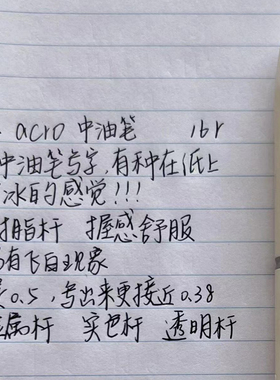 acro 中油笔 16r
中油笔写字,有种在纸上
冰的感觉!!!
拇指杆 握感舒服
有飞白现象
0.5,写出来更接近0.38
属杆 实色杆 透明杆